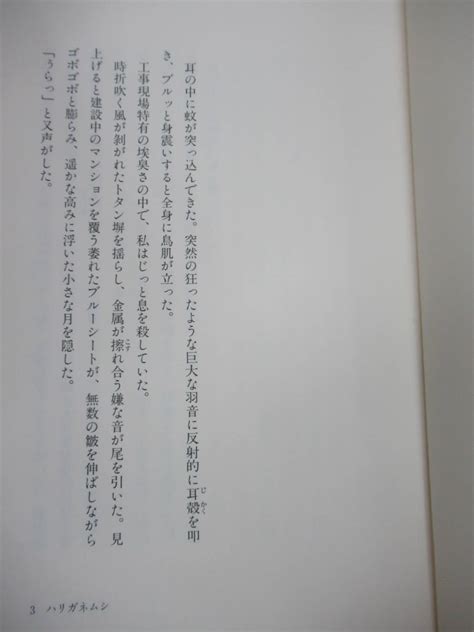 耳の中に蚊が突っ込んできた。突然の狂ったような巨大な羽音に反射的に耳殻を叩
き、ブルッと身震いすると全身に鳥肌が立った。
工事現場特有の埃臭さの中で、私はじっと息を殺していた。
時折吹く風が剝がれたトタン塀を揺らし、金属が擦れ合う嫌な音が尾を引いた。見
上げると建設中のマンションを覆う萎れたブルーシートが、無数の皺を伸ばしながら
ゴボゴボと膨らみ、遥かな高みに浮いた小さな月を隠した。
「うらっ」と又声がした。
3 ハリガネムシ